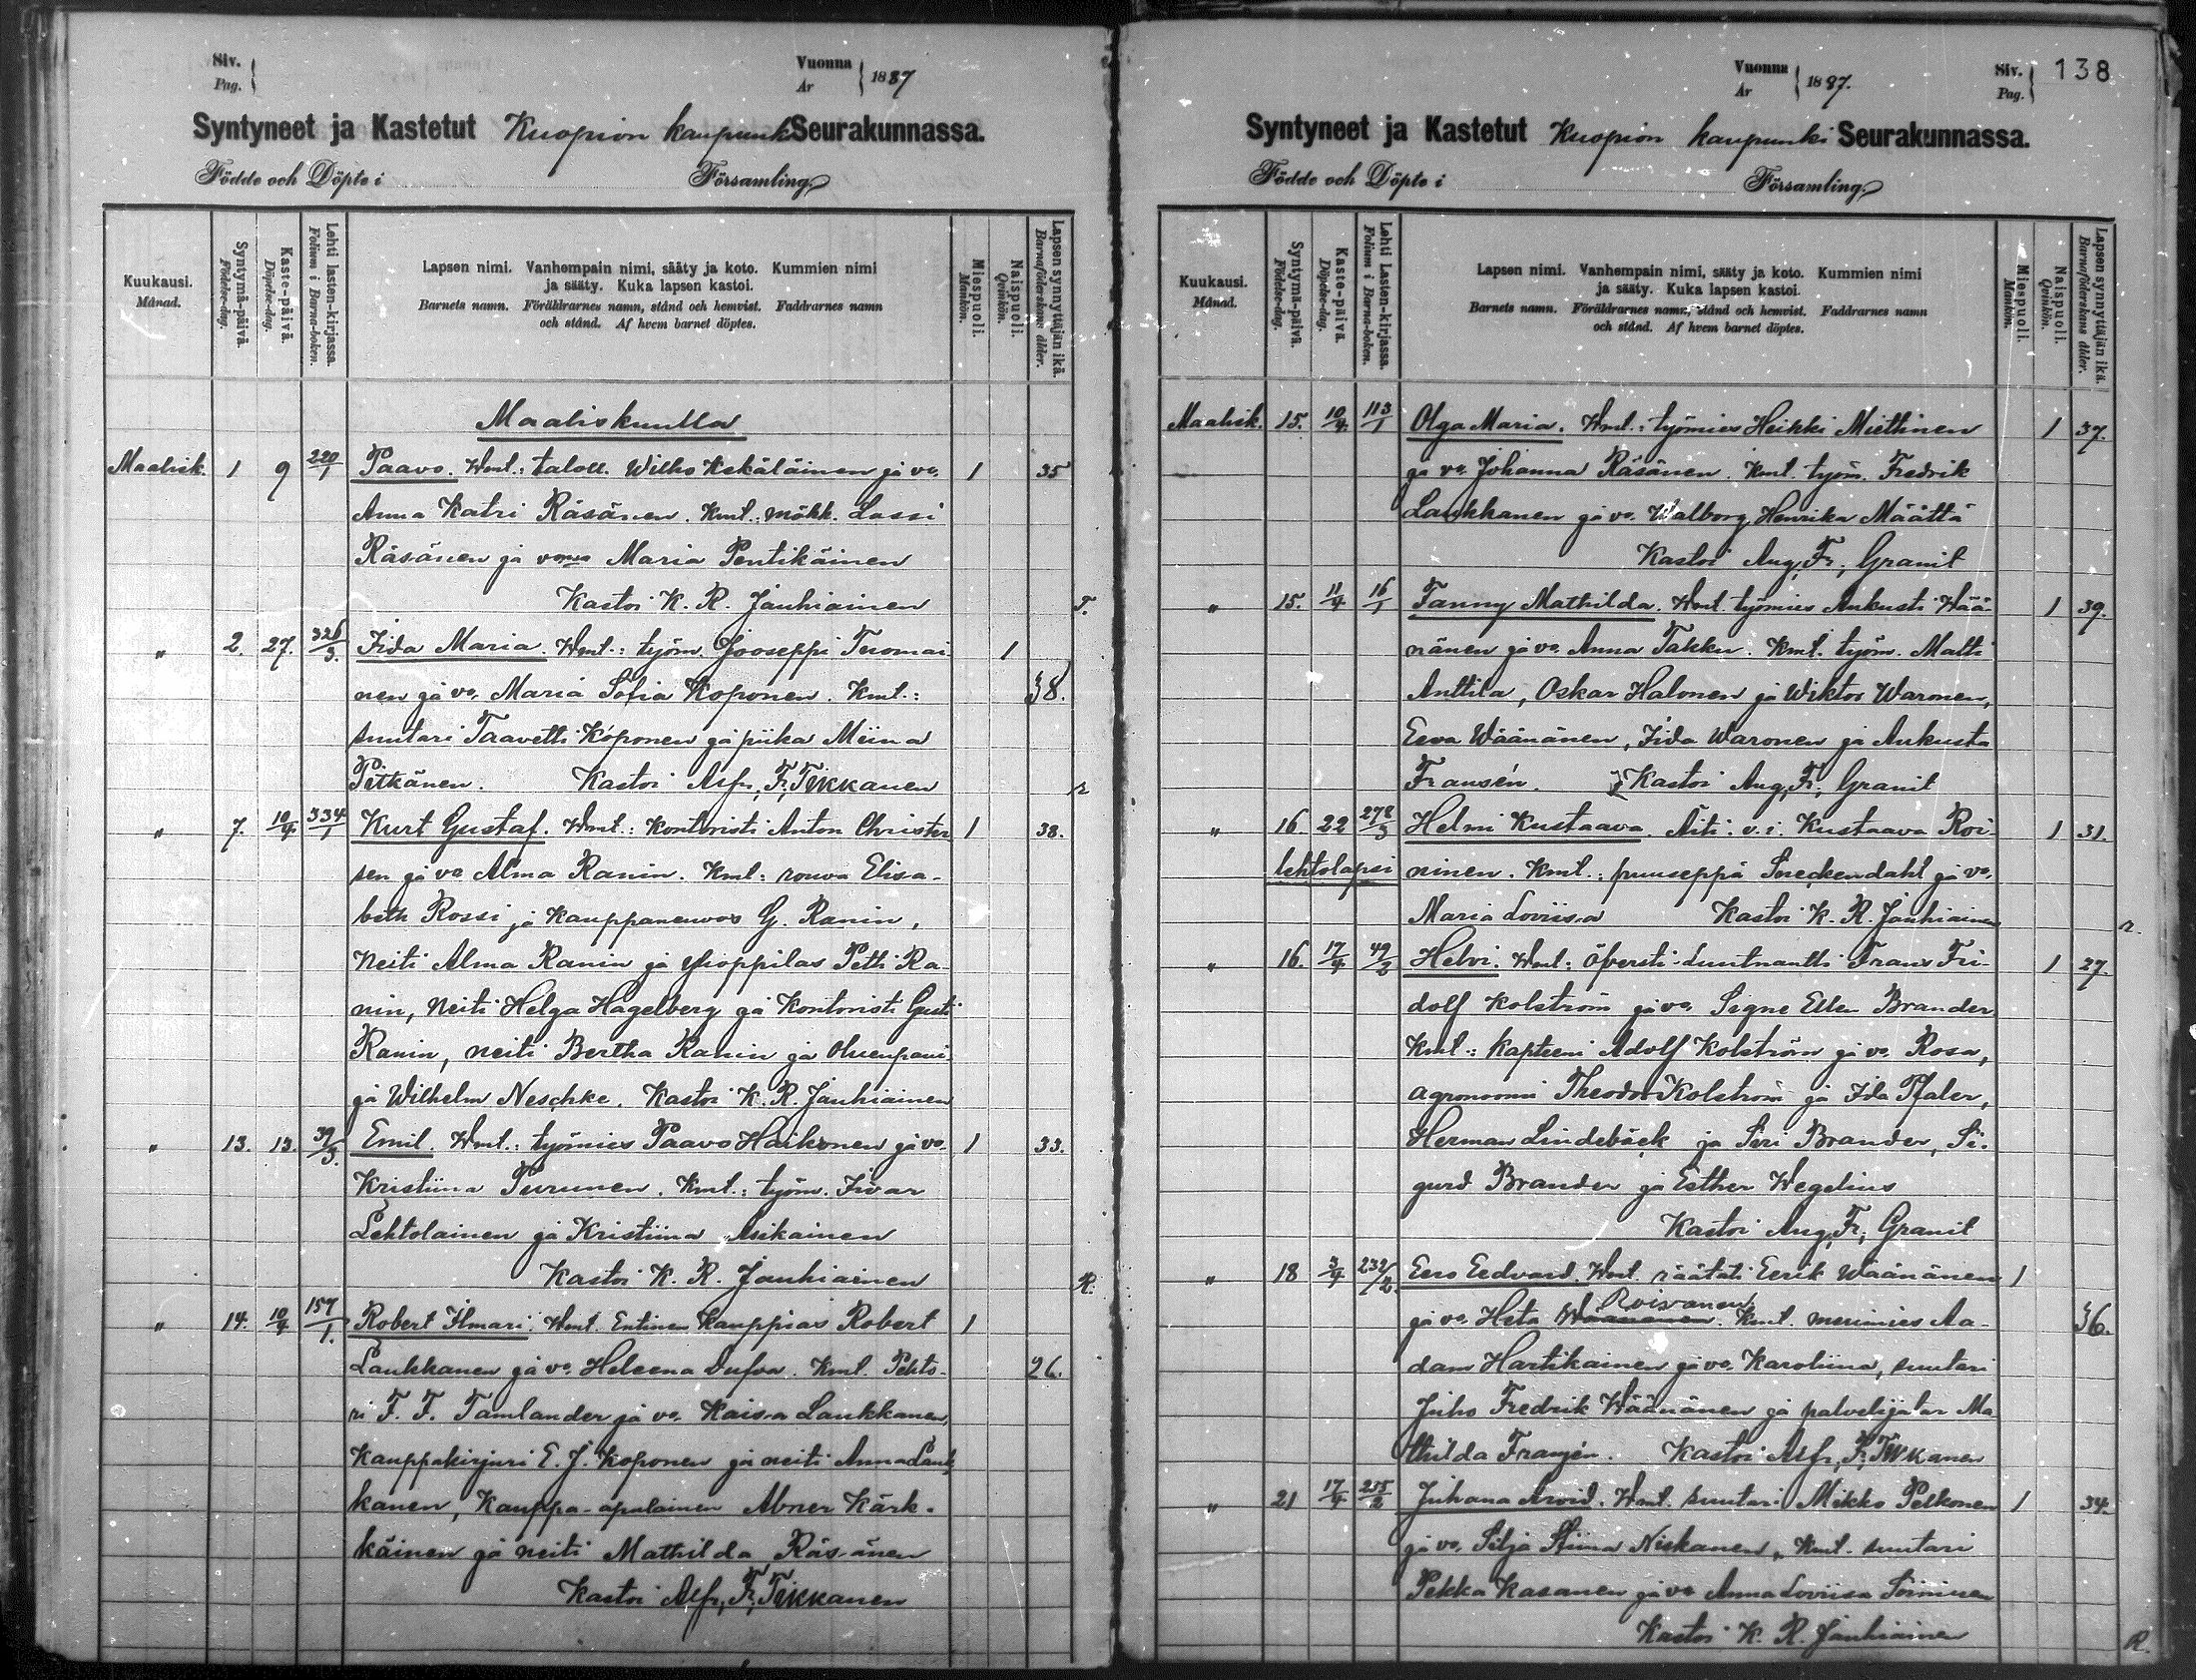 Siv.
Pag.
Vuonna
År
1887
Syntyneet ja Kastetut Kuopion kaupunki Seurakunnassa.
Födde och Döpte i Församling
Kuukausi.
Månad.
Syntymä-päivä.
Födelse-dag.
Kaste-päivä.
Döpelse-dag.
Lehti lasten-kirjassa.
Folium i Barna-boken.
Lapsen nimi. Vanhempain nimi, sääty ja koto. Kummien nimi
ja sääty. Kuka lapsen kastoi.
Barnets namn. Föräldrarnes namn, stånd och hemvist. Faddrarnes namn
och stånd. Af hvem barnet döptes.
Miespuoli.
Mankön.
Naispuoli.
Qvinkön.
Lapsen synnyttäjän ikä.
Barnaföderskans ålder.
Maaliskuulla
Maalisk. 1 9 220/1 Paavo. Wmt.: taloll. Wilho Kekäläinen ja vo. 1 35
Anna Katri Räsänen. Kmt.: mökk. Lassi
Räsänen ja vonsa Maria Pentikäinen
Kastoi K. R. Jauhiainen T.
" 2. 27. 326/3. Iida Maria. Wmt.: työm. Jooseppi Tuomai- 1
nen ja vo. Maria Sofia Koponen. Kmt.: 38.
suutari Taavetti Koponen ja piika Miina
Pitkänen. Kastoi Alfr. Fr. Tikkanen r
" 7. 10/4 334/1 Kurt Gustaf. Wmt.: Kontoristi Anton Christen- 1 38.
sen ja vo Alma Ranin. Kmt: rouva Elisa-
beth Rossi ja Kauppaneuvos G. Ranin,
Neiti Alma Ranin ja ylioppilas Petti Ra-
nin, Neiti Helga Hagelberg ja Kontoristi Gusti
Ranin, neiti Bertha Ranin ja oluenpani-
ja Wilhelm Neschke. Kastoi K. R. Jauhiainen
" 13. 13. 39/3. Emil. Wmt.: työmies Paavo Haikonen ja vo. 1 33.
Kristiina Turunen. Kmt.: työm. Iivar
Lehtolainen ja Kristiina Asikainen
Kastoi K. R. Jauhiainen R.
" 14. 10/4 157/1. Robert Ilmari. Wmt. Entinen Kauppias Robert 1
Laukkanen ja vo. Heleena Dufva. Kmt. Rehto- 26.
ri F. F. Tamlander ja vo. Kaisa Laukkanen,
Kauppakirjuri E. J. Koponen ja neiti Anna Lauk-
kanen, Kauppa-apulainen Abner Kärk-
käinen ja neiti Mathilda Räsänen
Kastoi Alfr. Fr. Tikkanen
Vuonna
År
1887.
Siv.
Pag.
138
Syntyneet ja Kastetut Kuopion kaupunki Seurakunnassa.
Födde och Döpte i Församling.
Kuukausi.
Månad.
Syntymä-päivä.
Födelse-dag.
Kaste-päivä.
Döpelse-dag.
Lehti Lasten-kirjassa.
Folium i Barna-boken.
Lapsen nimi. Vanhempain nimi, sääty ja koto. Kummien nimi
ja sääty. Kuka lapsen kastoi.
Barnets namn. Föräldrarnes namn, stånd och hemvist. Faddrarnes namn
och stånd. Af hvem barnet döptes.
Miespuoli.
Mankön.
Naispuoli.
Qvinkön.
Lapsen synnyttäjän ikä.
Barnaföderskans ålder.
Maalisk. 15. 10/4. 113/1 Olga Maria. Wmt.: työmies Heikki Miettinen 1 37.
ja vo. Johanna Räsänen. Kmt. työm. Fredrik
Laukkanen ja vo. Walborg Henrika Määttä
Kastoi Aug. Fr. Granit
" 15. 11/4 16/1 Fanny Mathilda. Wmt. työmies Aukusti Wää- 1 39.
nänen ja vo. Anna Takku. Kmt. työm. Matti
Anttila, Oskar Halonen ja Wiktor Waronen,
Eeva Wäänänen, Iida Waronen ja Aukusta
Fransén. Kastoi Aug. Fr. Granit
" 16 22 278/3 Helmi Kustaava. Äiti: v. i. Kustaava Roi- 1 31.
lehtolapsi ninen. Kmt.: puuseppä Sneckendahl ja vo.
Maria Loviisa Kastoi K. R. Jauhiainen r.
" 16. 17/4 49/2 Helvi. Wmt: öfversti-luutnantti Frans Fri- 1 27.
dolf Kolström ja vo. Signe Ellen Brander
Kmt.: Kapteeni Adolf Kolström ja vo. Rosa,
agronoomi Theodor Kolström ja Ida Pfaler,
Herman Lindebäck ja Siri Brander, Si-
gurd Brander ja Esther Wegelius
Kastoi Aug. Fr. Granit
" 18 3/4 232/2. Eero Eedvard. Wmt. räätäli Eerik Wäänänen 1
ja vo. Heta Wäänänen Roivanen. Kmt. merimies Aa- 36.
dam Hartikainen ja vo. Karoliina, suutari
Juho Fredrik Wäänänen ja palvelijatar Ma-
thilda Fransén. Kastoi Alfr. Fr. Tikkanen
" 21 17/4 215/2 Juhana Arvid. Wmt. suutari Mikko Pelkonen 1 34.
ja vo. Silja Stiina Niskanen. Kmt. suutari
Pekka Kasanen ja vo Anna Loviisa Soininen
Kastoi K. R. Jauhiainen R.